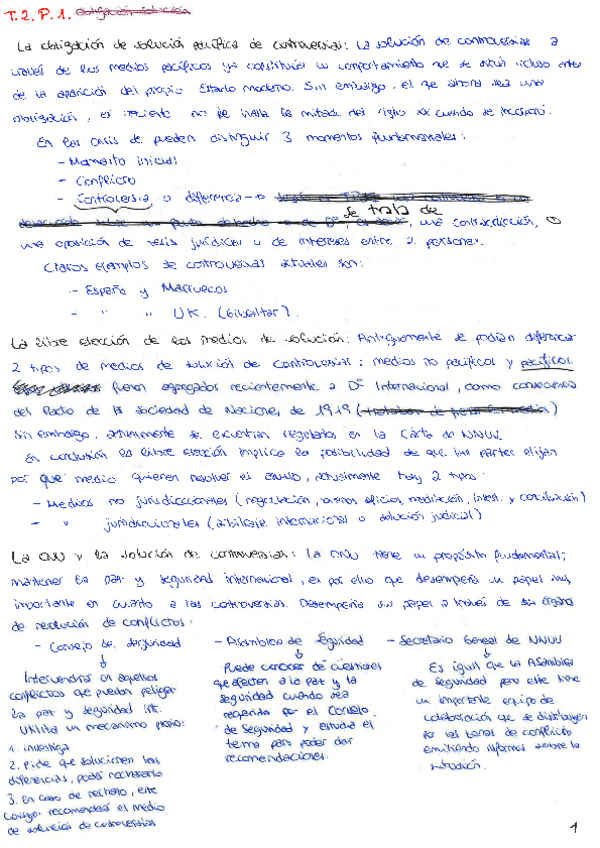 T.2. P.1.
La obligación de solución pacífica de controversias: La solución de controversias a
través de los medios pacíficos ya constituía un comportamiento que se daba incluso antes
de la aparición del propio Estado moderno. Sin embargo, el que ahora sea una
obligación, es reciente no fue hasta la mitad del siglo XX cuando se incorporó.
En las crisis se pueden distinguir 3 momentos fundamentales:
- Momento inicial
- Conflicto
- Controversia o diferencia →
se trata de una contradicción, o
una oposición de tesis jurídicas o de intereses entre 2 personas.
Claros ejemplos de controversias actuales son:
- España y Marruecos
- " " UK. (Gibraltar).
La libre elección de los medios de solución: Antiguamente se podían diferenciar
2 tipos de medios de solución de controversias: medios no pacíficos y pacíficos
fueron agregados recientemente a Dº Internacional, como consecuencia
del Pacto de la Sociedad de Naciones de 1919
Sin embargo, actualmente se encuentran regulados en la Carta de NNUU.
En conclusión la libre elección implica la posibilidad de que las partes elijan
por que medio quieren resolver el asunto, actualmente hay 2 tipos:
- Medios no jurisdiccionales (negociación, buenos oficios, mediación, invest. y conciliación)
- " jurisdiccionales (arbitraje internacional o solución judicial)
La ONU y la solución de controversias: La ONU tiene un propósito fundamental;
mantener la paz y seguridad internacional, es por ello que desempeña un papel muy
importante en cuanto a las controversias. Desempeña su papel a través de sus órganos
de resolución de conflictos:
- Consejo de seguridad
↓
Intervendrá en aquellos
conflictos que puedan peligrar
la paz y seguridad int.
Utiliza un mecanismo propio:
1. investiga
2. Pide que solucionen las
diferencias, podrá rechazarlo
3. En caso de rechazo, este
Consejo recomendará el medio
de solución de controversias
- Asamblea de Seguridad
↓
Puede conocer de cuestiones
que afecten a la paz y la
seguridad cuando sea
requerida por el Consejo
de Seguridad y estudia el
tema para poder dar
recomendaciones.
- Secretario General de NNUU
↓
Es igual que la Asamblea
de Seguridad pero este tiene
un importante equipo de
colaboración que se distribuyen
por las zonas de conflicto
emitiendo informes sobre la
situación.
1